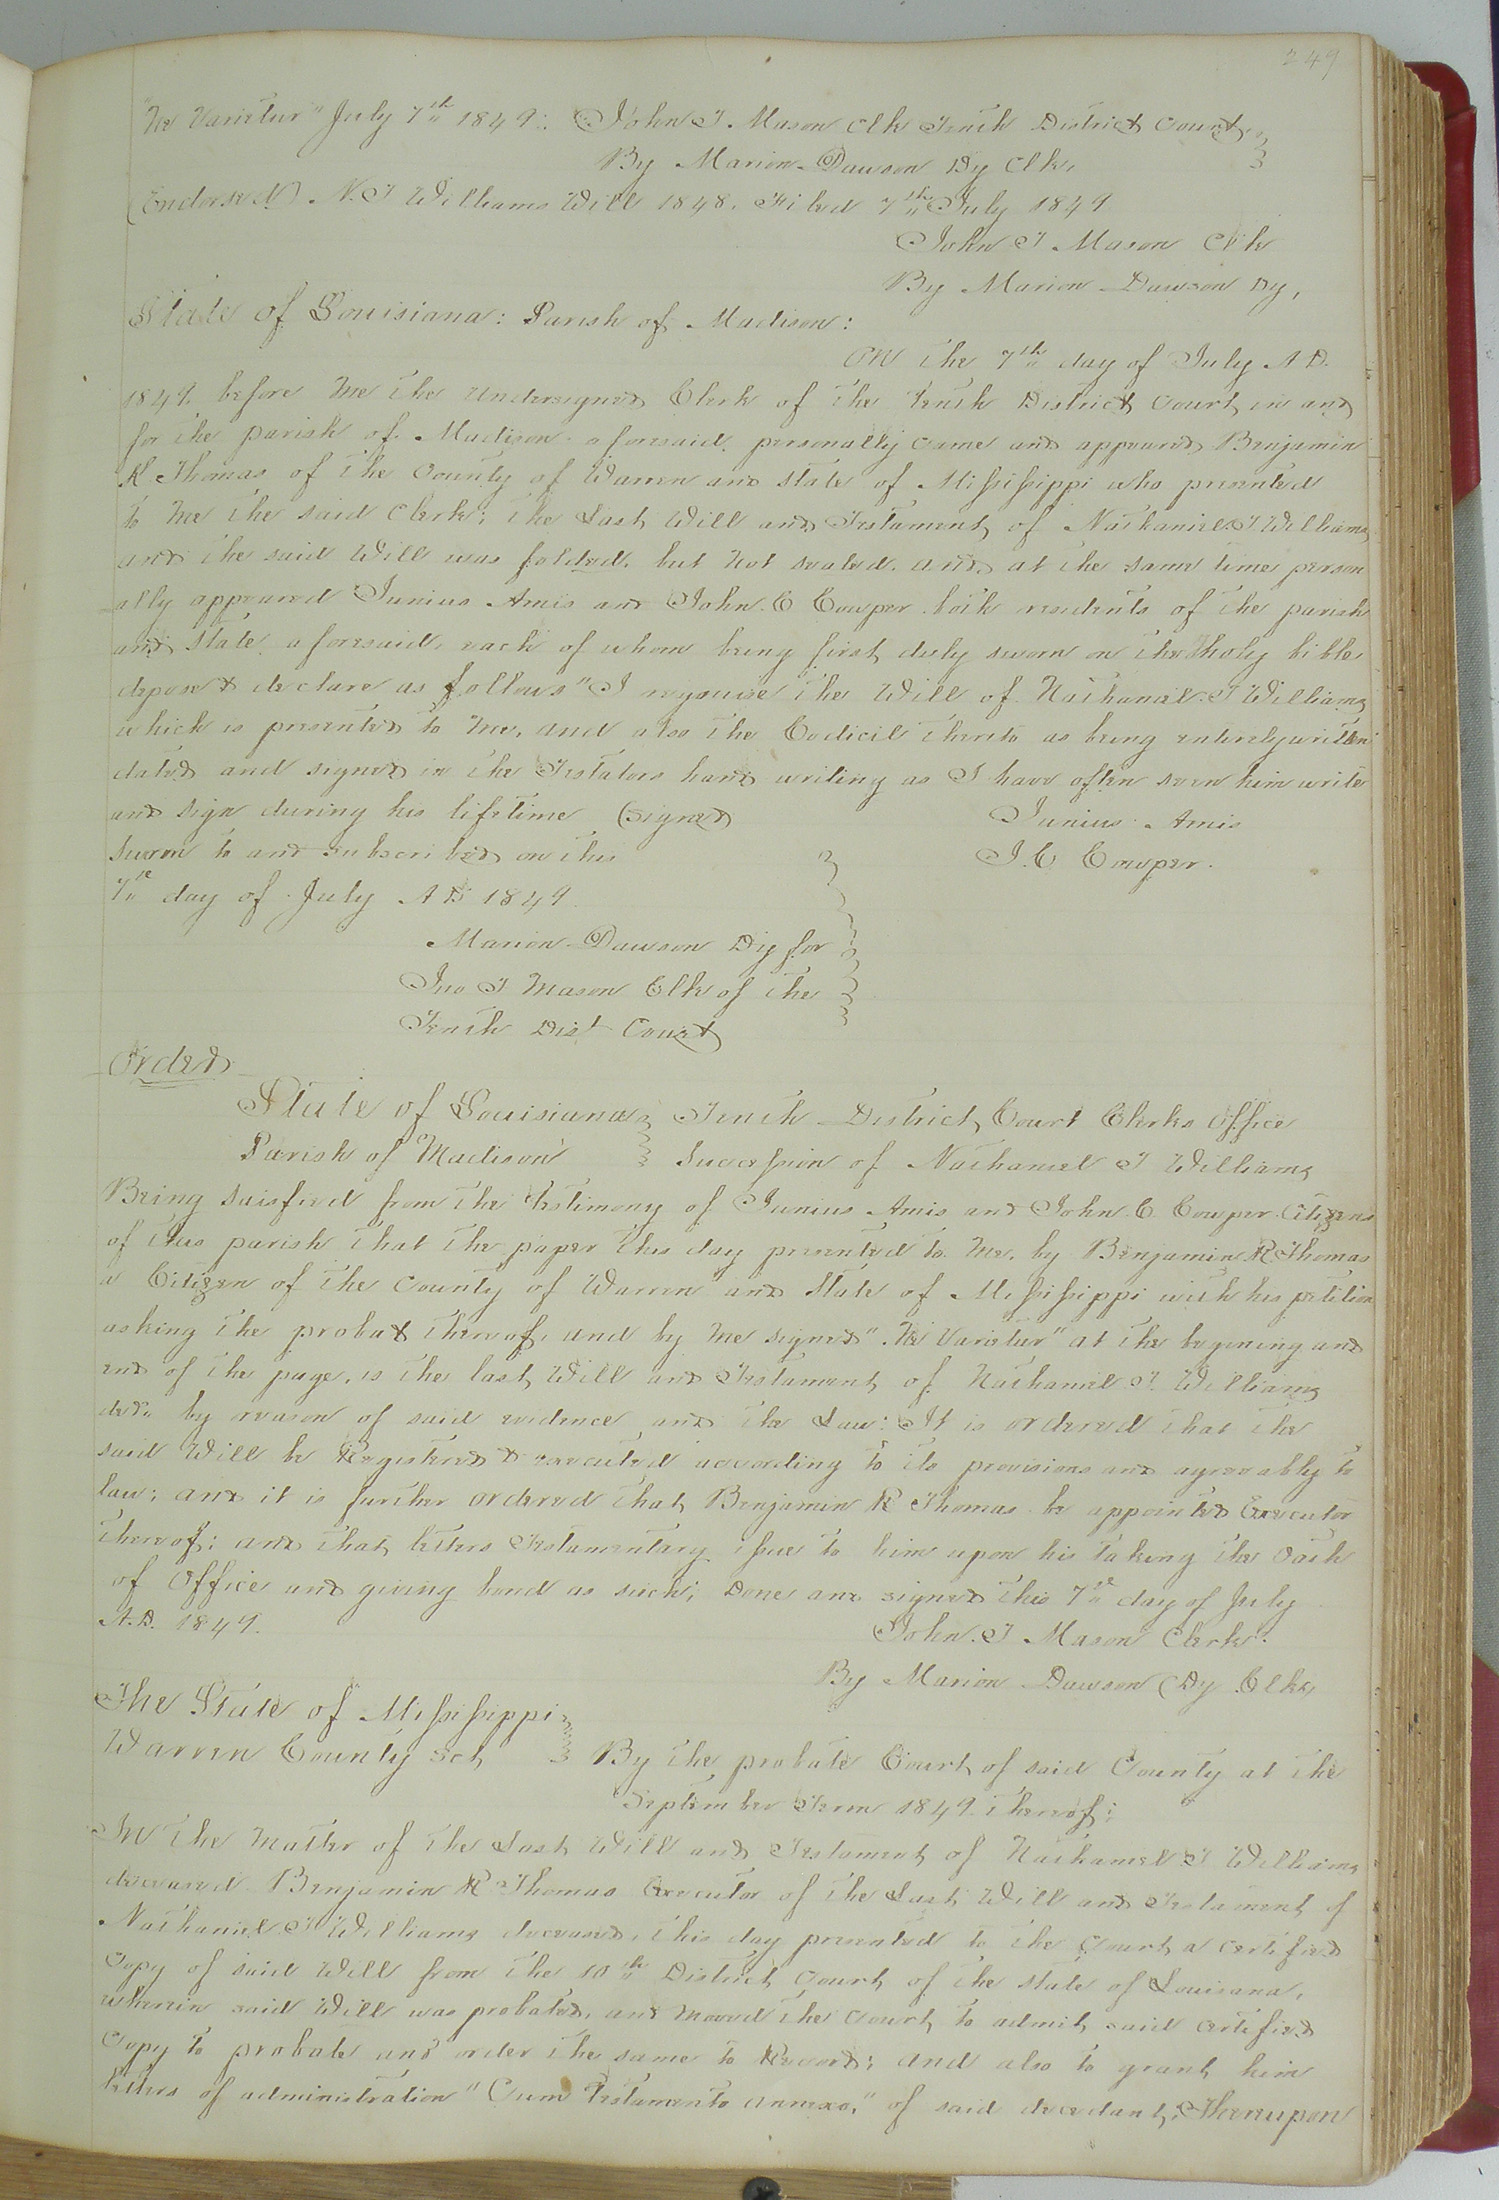 249
"Ne Varietur" July 7th 1849: John T. Mason Clk Tenth District Court
By Marion Dawson Dy Clk,
(Endorsed) N. T Williams Will 1848. Filed 7th July 1849
John T Mason Clk
By Marion Dawson Dy,
State of Louisiana: Parish of Madison:
On the 7th day of July A D.
1849. before me the undersigned Clerk of the tenth District Court in and
for the parish of Madison aforesaid, personally came and appeared Benjamin
R Thomas of the County of Warren and State of Mississippi who presented
to me the said Clerk; the Last Will and Testament of Nathaniel T Williams
and the said Will was folded. but not sealed. and at the same time person
ally appeared Junius Amis and John C Cowper both residents of the parish
and State aforesaid, each of whom being first duly sworn on the holy bible,
depose & declare as follows "I recognise the Will of Nathaniel T Williams
which is presented to me, and also the Codicil thereto as being entirely written
dated and signed in the Testators hand writing as I have often seen him write
and sign during his lifetime (signed Junius Amis
Sworn to and subscribed on this J. C Cowper.
7th day of July A D 1849
Marion Dawson Dy for
Jno T Mason Clk of the
Tenth Dist Court
Order
State of Louisiana Tenth District Court Clerks office
Parish of Madison Succession of Nathaniel T Williams
Being saisfied from the testimony of Junius Amis and John C. Cowper Citizens
of this parish that the paper this day presented to me, by Benjamin R Thomas
a Citizen of the County of Warren and State of Mississippi with his petition
asking the probat thereof, and by me signed "Ne Varietur" at the begining and
end of the page, is the last Will and Testament of Nathaniel T. Williams
decd. by reason of said evidence and the Law: It is ordered that the
said Will be Registered & executed according to its provisions and agreeably to
law; and it is further ordered that Benjamin R Thomas be appointed Executor
thereof: and that letters Testamentary issue to him upon his taking the Oath
of Office and giving bond as such; Done and signed this 7th day of July
A.D. 1849. John. T Mason Clerk.
By Marion Dawson Dy Clk,
The State of Mississippi
Warren County Sct, By the probate Court of said County at the
September Term 1849 thereof:
In the Matter of the Last Will and Testament of Nathaniel T Williams
deceased Benjamin R Thomas Executor of the Last Will and Testament of
Nathaniel T Williams deceased, this day presented to the Court a certified
Copy of said Will from the 10th District Court of the State of Louisana,
wherein said Will was probated, and moved the Court to admit said certified
Copy to probate and order the same to Record; and also to grant him
letters of administration "Cum testamento annexo," of said decedant, Thereupon